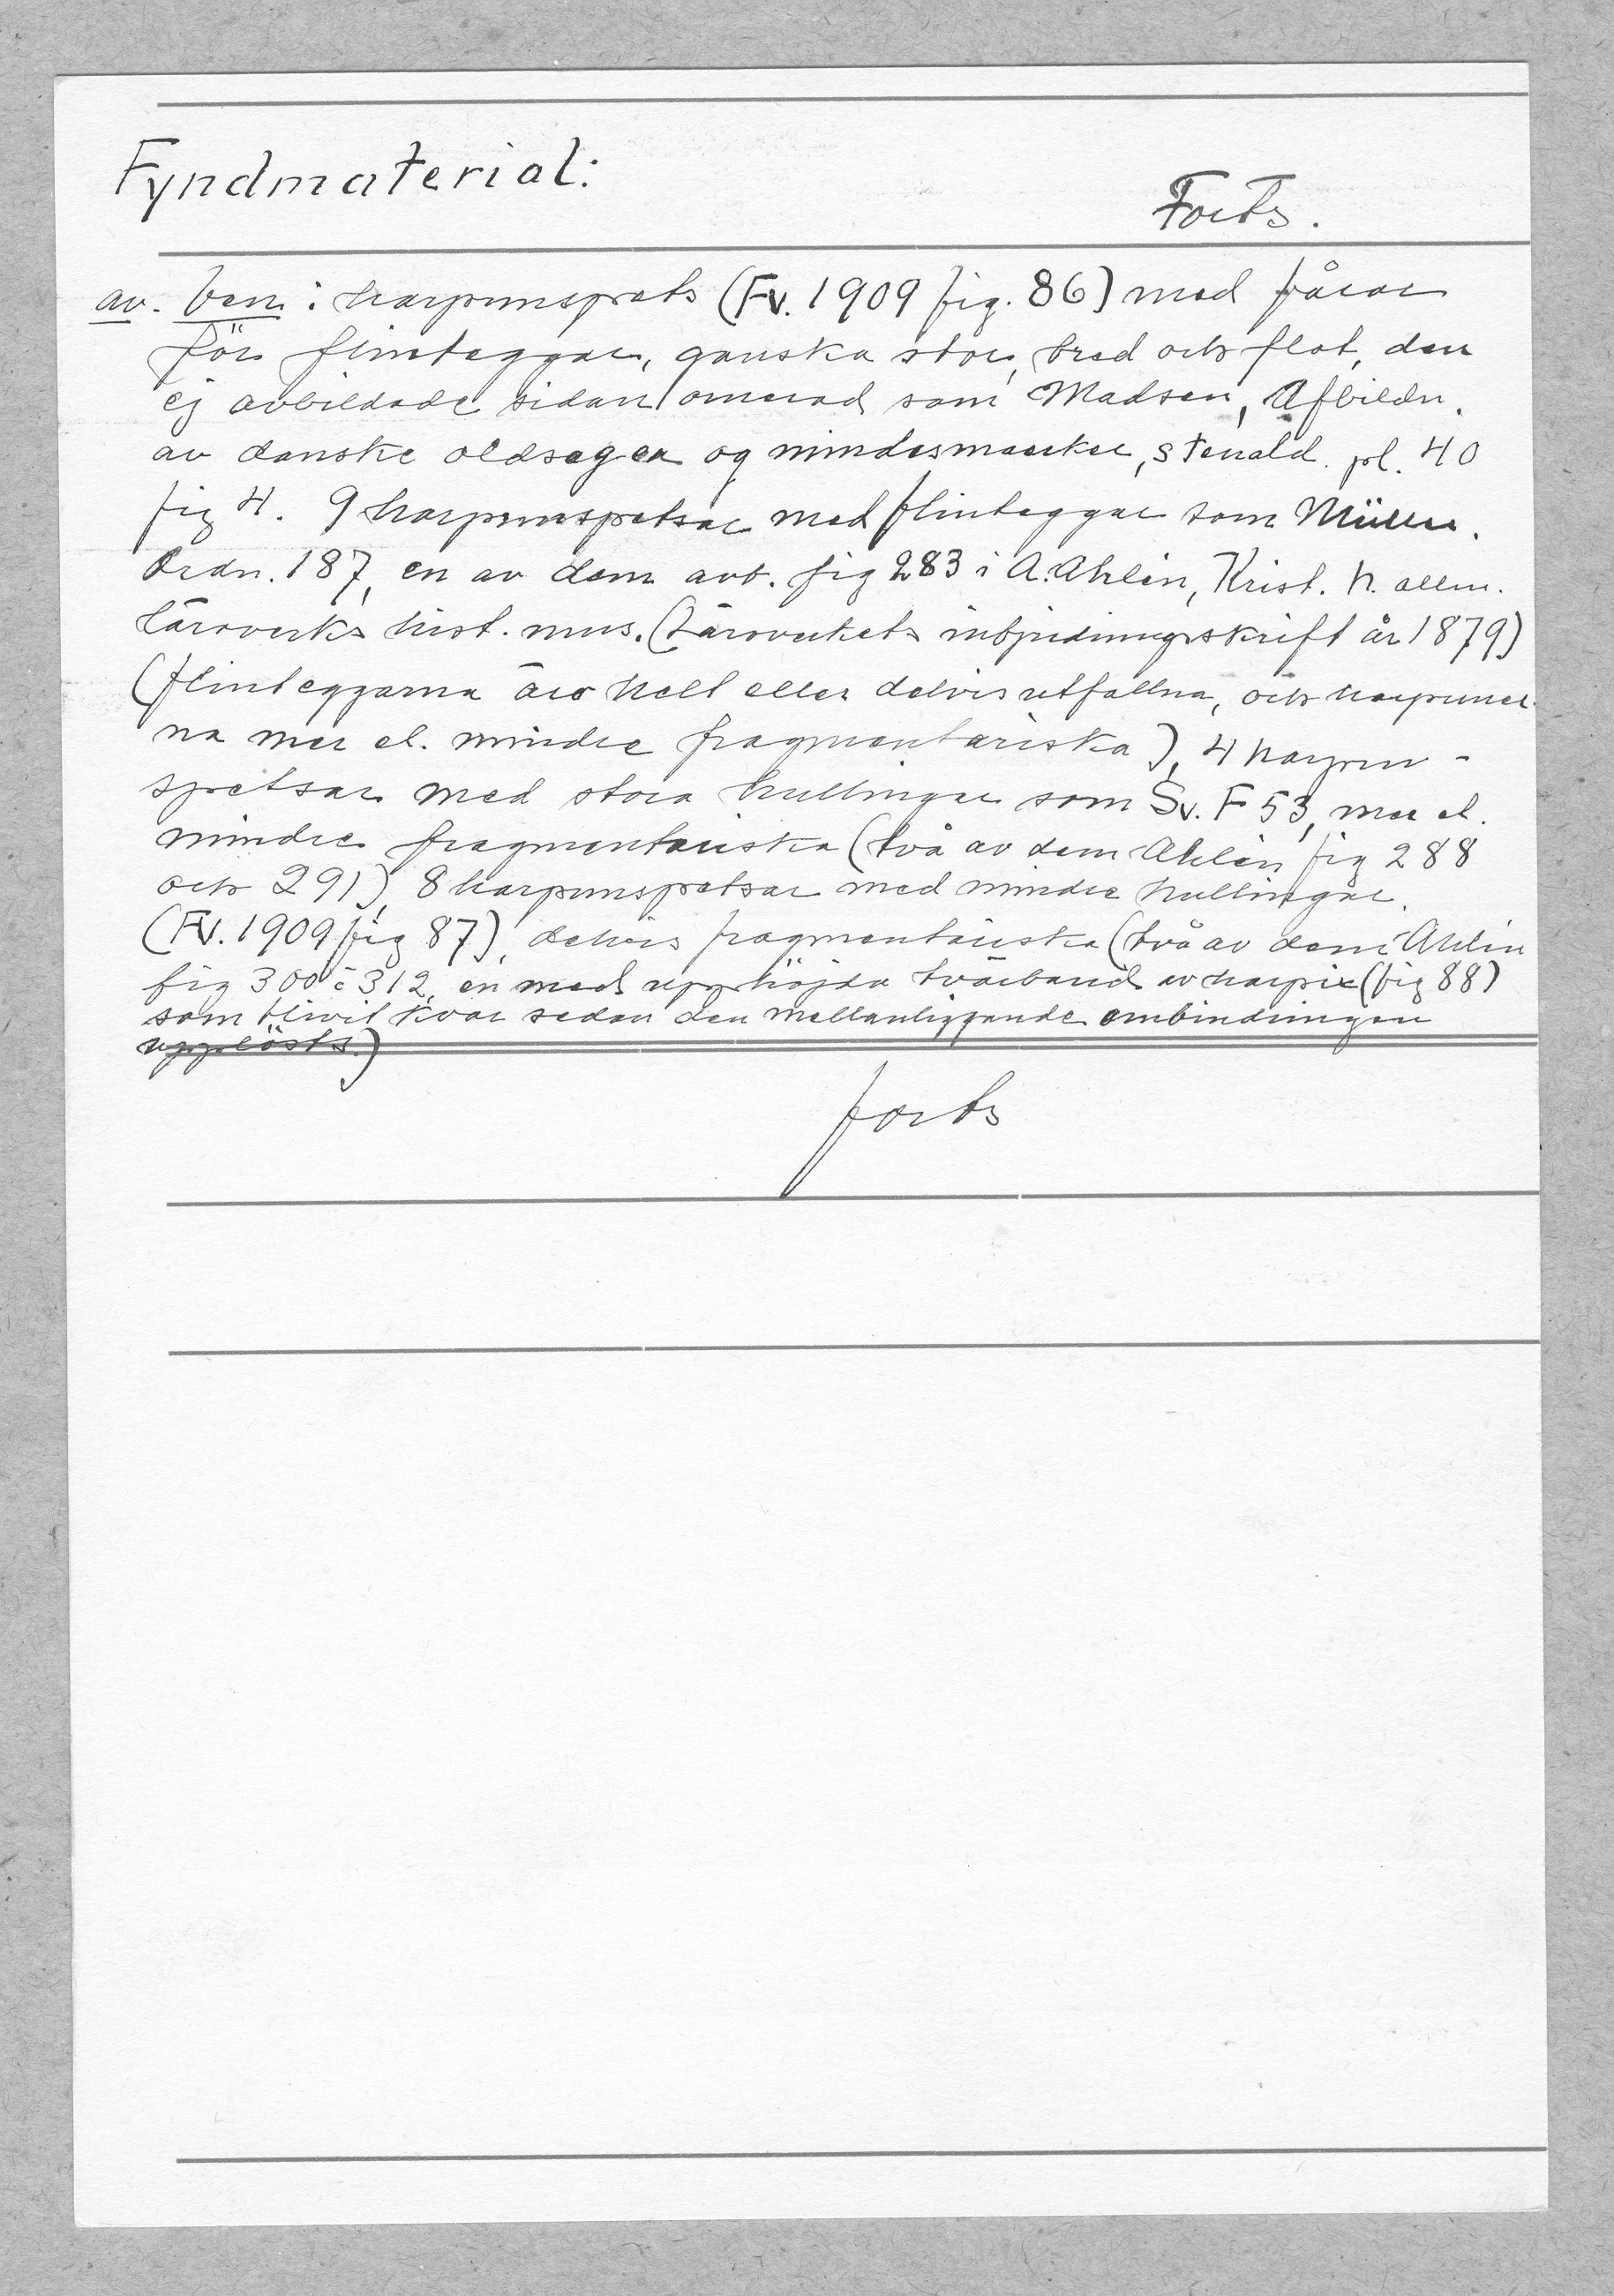 Fyndmaterial:
Forts.
av. ben: harpunspets (Fv. 1909 fig. 86) med fåror
för flinteggar, ganska stor, bred och flat, den
ej avbildade sidan ornerad som Madsen, Afbildn.
av danske oldsager og mindesmaerker, stenald. pl. 40
fig 4. 9 harpunspetsar med flinteggar som Müller.
Ordn. 187, en av dem avb. fig 283 i A. Ahlén, Krist. h. allm.
läroverks hist. mus. (Läroverkets inbjudningsskrift år 1879)
(flinteggarna äro helt eller delvis utfallna, och harpuner-
na mer el. mindre fragmentariska), 4 harpun-
spetsar med stora hullingar som Sv. F 53, mer el.
mindre fragmentariska (två av dem Ahlén fig 288
och 291), 8 harpunspetsar med mindre hullingar.
(Fv. 1909 fig 87), delvis fragmentariska (två av dem Ahlén
fig 300 o 312, en med upphöjda tvärband av harpix (fig 88)
som blivit kvar sedan den mellanliggande ombindningen
upplösts.)
forts